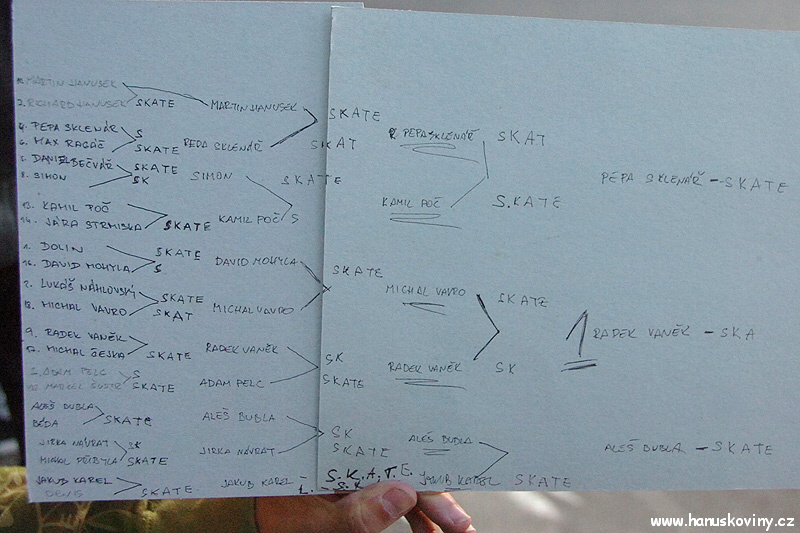 MARTIN HANUSEK
2. RICHARD HANUSEK SKATE MARTIN HANUSEK SKATE
4. PEPA SKLENÁŘ S PEPA SKLENÁŘ SKAT
6. MAX RAGÁČ SKATE
DANIEL BEČVÁŘ SKATE
8. SIMON SK SIMON SKATE
13. KAMIL POČ
14. JÁRA STRMISKA SKATE KAMIL POČ S
DOLIN SKATE
16. DAVID MOHYLA S DAVID MOHYLA SKATE
LUKÁŠ NÁHLOVSKÝ SKATE
MICHAL VAVRO SKAT MICHAL VAVRO
9. RADEK VANĚK
MICHAL ČEJKA SKATE RADEK VANĚK SK
ADAM PELC S
MARCEL ŠUSTR SKATE ADAM PELC SKATE
ALEŠ BUBLA
BÉĎA SKATE ALEŠ BUBLA SK
JIRKA NÁVRAT SK
MICHAL PŘIBYLA SKATE JIRKA NÁVRAT SKATE
JAKUB KAREL
DENIS SKATE. JAKUB KAREL S.K.A.T.E.
PEPA SKLENÁŘ SKAT
KAMIL POČ S.KATE
MICHAL VAVRO SKATE
RADEK VANĚK SK
ALEŠ BUBLA
JAKUB KAREL SKATE
PEPA SKLENÁŘ - SKATE
1 RADEK VANĚK - SKA
ALEŠ BUBLA - SKATE
www.hanuskoviny.cz